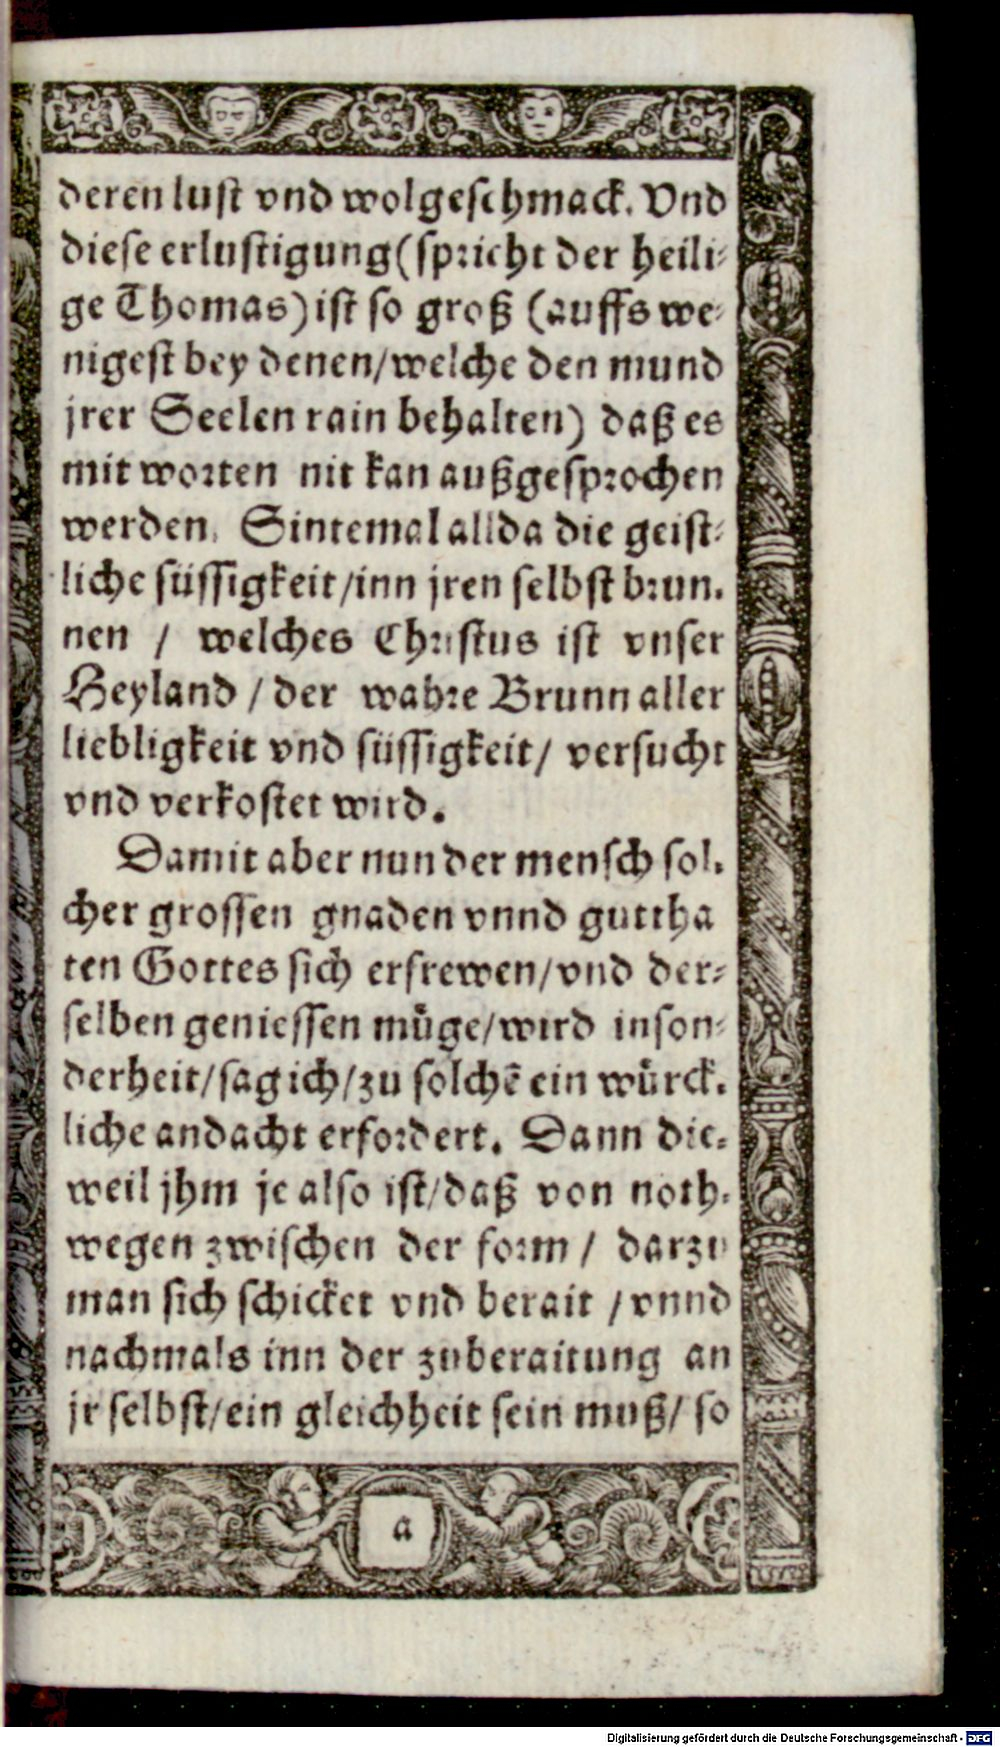 deren lust vnd wolgeschmack. Vnd
diese erlustigung (spricht der heili-
ge Thomas) ist so groß (auffs we-
nigest bey denen/welche den mund
jrer Seelen rain behalten) daß es
mit worten nit kan außgesprochen
werden. Sintemal allda die geist-
liche süssigkeit/inn jren selbst brun-
nen / welches Christus ist vnser
Heyland / der wahre Brunn aller
liebligkeit vnd süssigkeit/ versucht
vnd verkostet wird.
Damit aber nun der mensch sol-
cher grossen gnaden vnnd guttha
ten Gottes sich erfrewen/vnd der-
selben geniessen müge/wird inson-
derheit/sag ich/zu solchē ein würck-
liche andacht erfordert. Dann die-
weil jhm je also ist/daß von noth-
wegen zwischen der form / darzu
man sich schicket vnd berait /vnnd
nachmals inn der zuberaitung an
jr selbst/ein gleichheit sein muß/ so
a
Digitalisierung gefördert durch die Deutsche Forschungsgemeinschaft - DFG